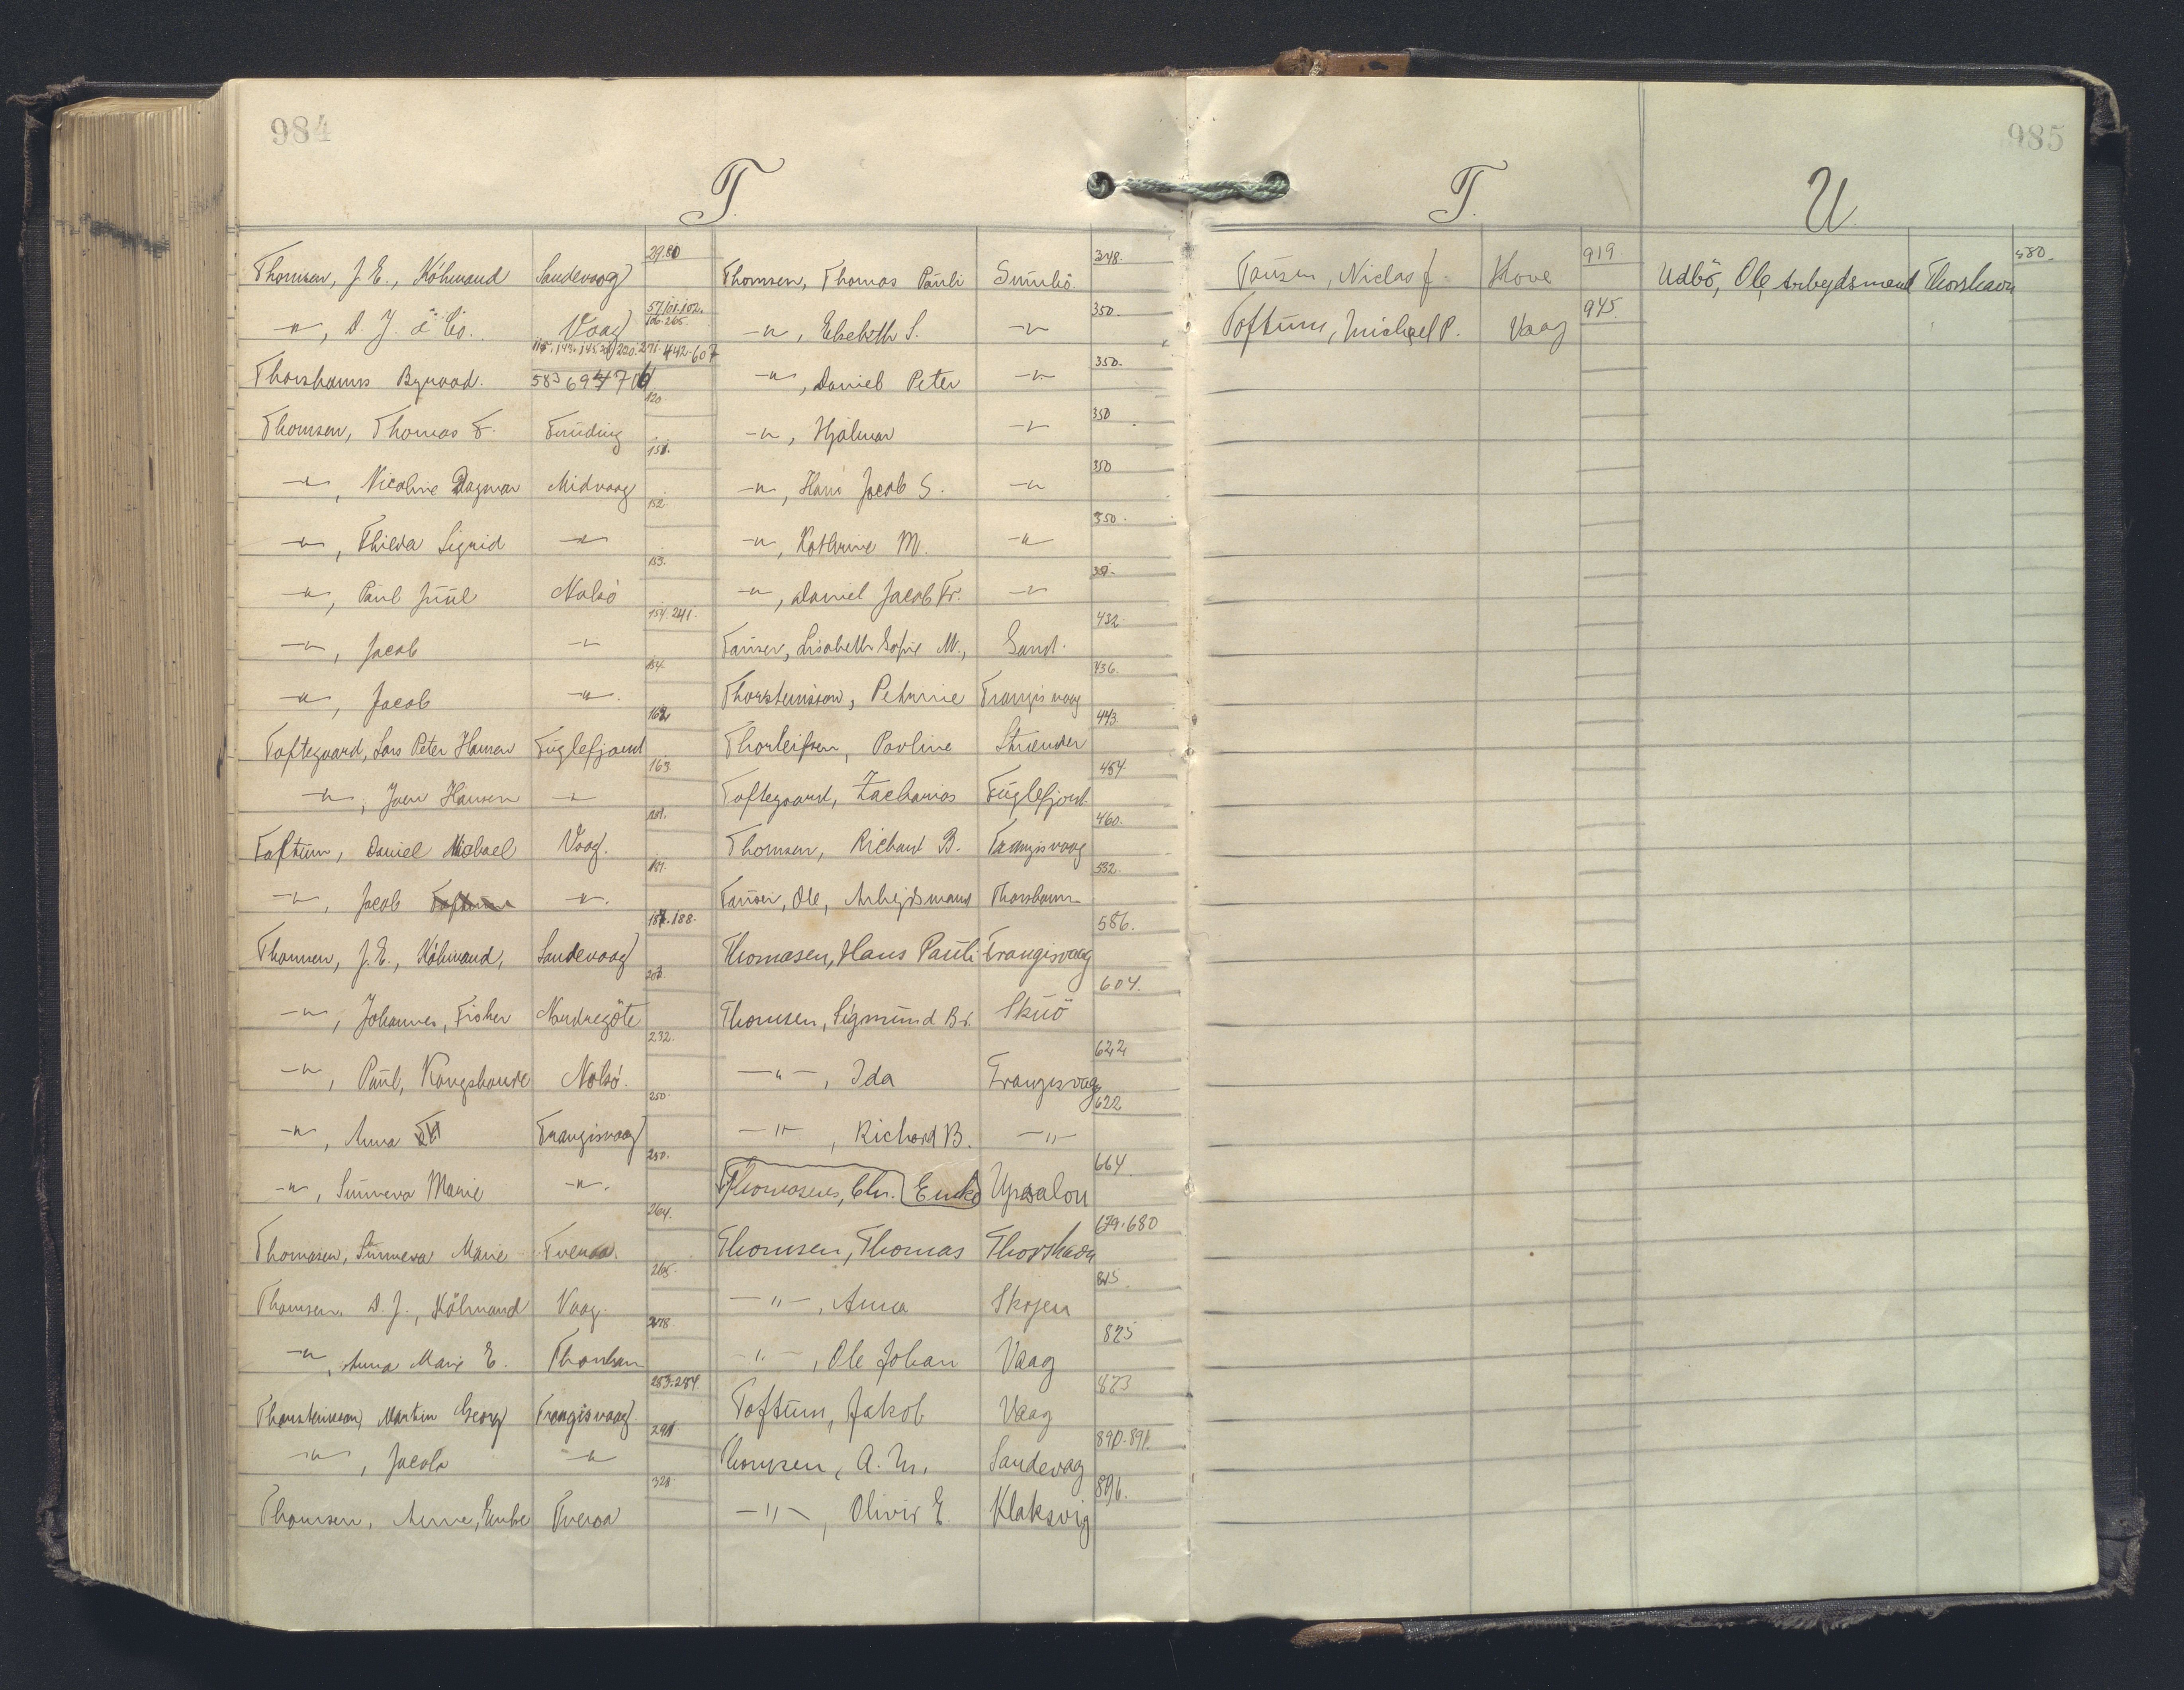 984
T.
Thomsen, J. E., Köbmand Sandevaag 29.80
-"-, D. J. & Co. Vaag 57.101.102. 106.265.
Thorshavns Byraad. 115.143.145. 220.271.442.607 583 694 706
Thomsen, Thomas F. Funding 120
-"-, Nicoline Dagmar Midvaag 151.
-"-, Thilda Sigrid -"- 152.
-"-, Paul Juul Nolsö 153.
-"-, Jacob -"- 154.241.
-"-, Jacob -"-. 154.
Toftegaard, Lars Peter Hansen Fuglefjord 162
-"-, Joen Hansen -"- 163.
Toftum, Daniel Michael Vaag. 181.
-"-, Jacob Toftum -"-. 181.
Thomsen, J. E., Köbmand, Sandevaag 187.188.
-"-, Johannes, Fisker Nordregöte 203.
-"-, Paul, Kongsbonde Nolsö. 232.
-"-, Anna Trangisvaag 250.
-"-, Sunneva Marie -"-. 250.
Thomasen, Sunneva Marie Tveraa. 264.
Thomsen, D. J., Köbmand Vaag. 265.
-"-, Anna Marie E. Thorshavn 278.
Thorsteinsson, Martin Georg Trangisvaag 283.284
-"-, Jacob -"- 291
Thomsen, Anne, Enke Tveraa 328
Thomsen, Thomas Pauli Sumbö. 348.
-"-, Elsebeth S. -"- 350.
-"-, Daniel Peter -"- 350.
-"-, Hjalmar -"- 350
-"-, Hans Jacob S. -"- 350
-"-, Kathrine M. -"- 350.
-"-, Daniel Jacob Fr. -"- 351.
Tausen, Lisabeth Sofie M., Sand. 432
Thorsteinsson, Petrine Trangisvaag 436.
Thorleifsen, Povline Strender 443.
Toftegaard, Zacharias Fuglefjord. 454.
Thomsen, Richard B. Trangisvaag 460.
Tausen, Ole, Arbejdsmand Thorshavn 532.
Thomasen, Hans Pauli Trangisvaag 586.
Thomsen, Sigmund Br. Skuö 604.
-"-, Ida Trangisvaag 622
-"-, Richard B. -"- 622
Thomasens, Chr. Enke Upsalon 664.
Thomsen, Thomas Thorshavn 679.680
-"-, Anna Skopen 815.
-"-, Ole Johan Vaag 825
Toftum, Jakob Vaag 873
Thomsen, A. M. Sandevag 890.891.
-"-, Olivir E. Klaksvig 896.
985
T.
Tausen, Niclas J. Hove 919.
Toftum, Michael P. Vaag 945.
U.
Udbö, Ole, Arbejdsmand Thorshavn 580.